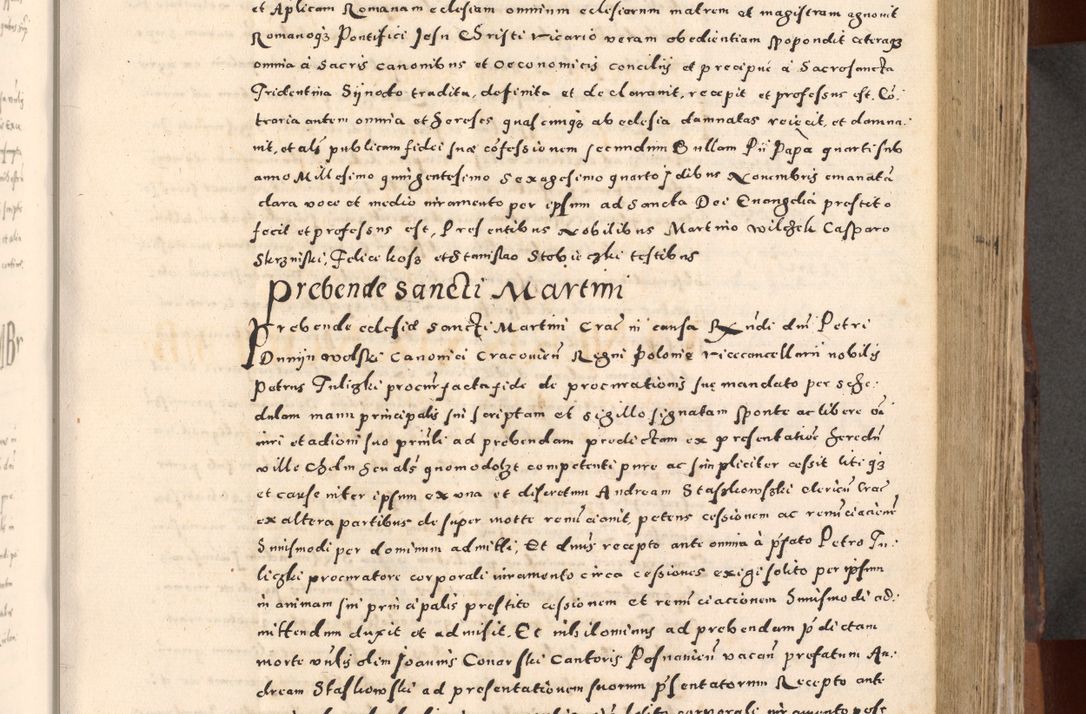 et Aplicam Romanam eclesiam omnium eclesiarum matrem et magistram agnovit
Romanoqz Pontifici Jesu Christi vicario veram obedientiam spopondit ceteraqz
omnia à Sacris canonibus et oeconomicis conciliis et precipue à Sacrosancta
Tridentina Synodo tradita, definita et declarauit, recepit et professus est. Cō
traria autem omnia et hereses quascunqz ab eclesia damnatas reiecit, et damna-
uit, et als publicam fidei suae cōfessionem secundum Bullam Pii Papa quarti sub
anno Millesimo quingentesimo Sexagesimo quarto Jdibus Nouembris emanatā
clara voce et medio iuramento per ipsum ad Sancta Dei Euangelia prestito
fecit et professus est, Presentibus Nobilibus Martino Wilczek Casparo
Skrzniski, Felice kosz et Stanislao Stobieczki testibus
Prebende Sancti Martini
Prebende eclesie Sancti Martini Crac in causa Rndi dni Petri
Dunijn Wolski Canonici Cracouien Regni Polonię vicecancellarii nobilis
Petrus Tuliczki procur facta fide de procurationis suę mandato per sche-
dulam manu principalis sui scriptam et sigillo signatam sponte ac libere oī
iuri et actioni suo priuli ad prebendam predictam ex presentatioe heredū
ville Chelm seu als quomodolzt competenti pure ac simpliciter cessit liti qz
et cause inter ipsum ex una et discretum Andream Staszkowszki clericū Crac
ex altera partibus de super motte renūciauit, petens cessionem ac renūciacioēm
huiusmodi per dominum admitti, Et dnus recepto ante omnia à pfato Petro Tu-
liczki procuratore corporali iuramento circa cessiones exigi solito per ipsum
in animam sui principalis prestito cessionem et renūciacionem huiusmodi ad-
mittendum duxit et admisit. Et nihilominus ad prebendam pdictam
morte vnlis olim Joannis Conarski Cantoris Posnanien vacan prefatum An-
dream Staszkowski ad presentationem suorum psentatorum Recepto ante